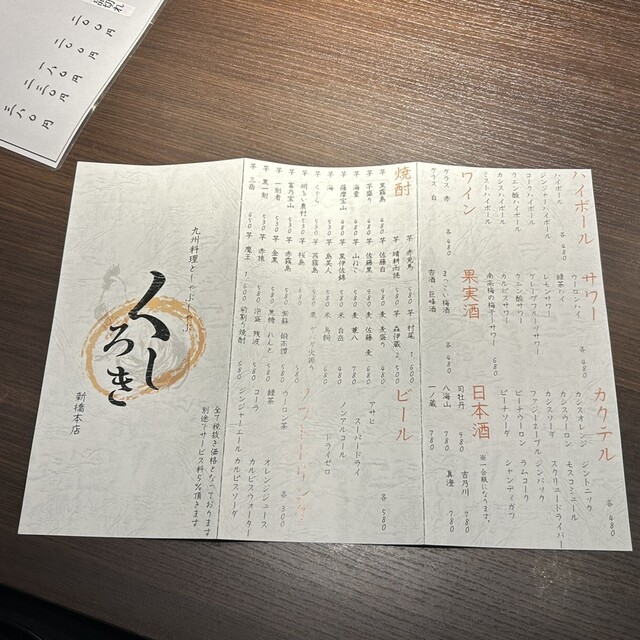 ハイボール
ハイボール
ジンジャーハイボール
コークハイボール
ウエン酸ハイボール
カシスハイボール
ミストハイボール
各 480
サワー
ウーロンハイ
緑茶ハイ
レモンサワー
グレープフルーツサワー
ウエン酸サワー
カルピスサワー
南高梅の梅干しサワー 680
各 480
カクテル
カシスオレンジ
カシスウーロン
カシスソーダ
ファジーネーブル
ピーチウーロン
ピーチソーダ
ジントニック
モスコミュール
スクリュードライバー
ジンバック
ラムコーク
シャンディガフ
各 480
ワイン
グラス、赤
グラス、白
各 480
果実酒
まっこい梅酒
杏酒
巨峰酒
各 480
日本酒
※一合瓶になります。
司牡丹 980
八海山 780
一ノ蔵 780
吉乃川 780
真澄 780
焼酎
芋 黒霧島 480
芋 芋盛り 480
芋 海童 480
芋 薩摩宝山 480
芋 海
芋 くじら
芋 明るい農村 530
芋 富乃宝山 530
芋 一刻者 530
芋 黒一刻 530
芋 三岳 650
芋 赤兎馬
芋 晴耕雨読
芋 佐藤白
芋 佐藤黒
芋 山ねこ
芋 黒伊佐錦
芋 島美人
芋 茜霧島
芋 桜島
芋 赤霧島
芋 金黒
芋 赤猿
芋 魔王 1,600
芋 村尾 1,600
芋 森伊蔵 2,500
麦 麦盛り 480
麦 佐藤 麦 680
麦 兼八
米 白岳
米 鳥飼
前割り焼酎
ビール
アサヒ
スーパードライ
ノンアルコール
ドライゼロ
各 580
ウーロン茶
緑茶
コーラ
ジンジャーエール
オレンジジュース
カルピスウォーター
カルピスソーダ
各 300
九州料理としゃぶしゃぶ
くしろき
新橋本店
全て税抜き価格となっております
別途でサービス料5%頂きます
二〇〇円
二〇〇円
一八〇円
二三〇円
三八〇円